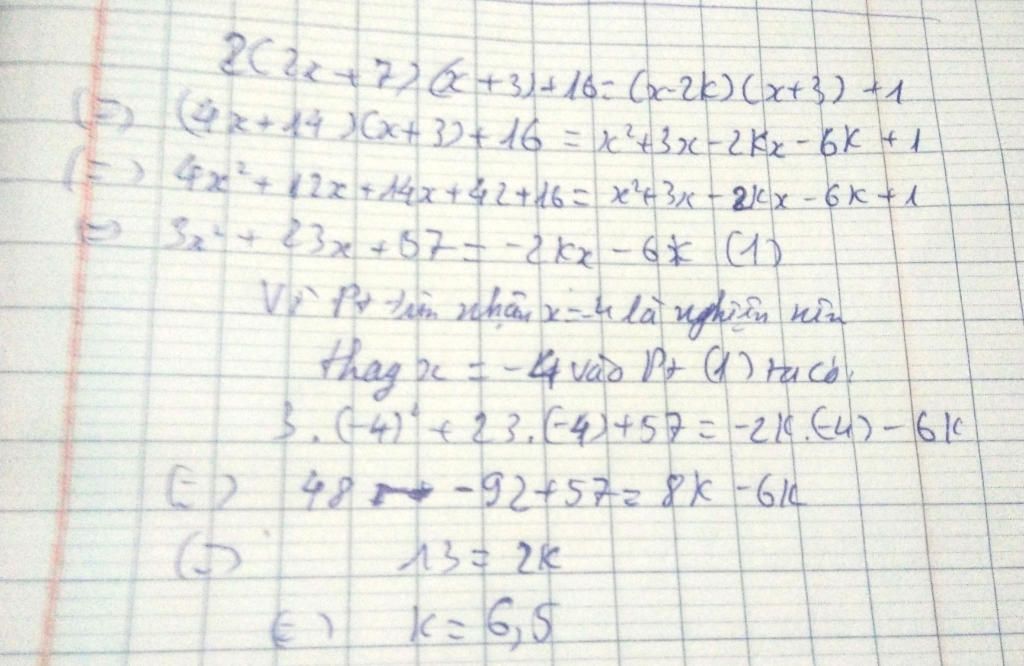 2(2x+7)(x+3)+16=(x-2k)(x+3)+1
(=) (4x+14)(x+3)+16=x²+3x-2kx-6k+1
(=) 4x²+12x+14x+42+16=x²+3x-2kx-6k+1
(=) 3x²+23x+57=-2kx-6k (1)
Vì Pt trên nhận x=-4 là nghiệm nên
thay x=-4 vào Pt (1) ta có:
3.(-4)²+23.(-4)+57=-2k.(-4)-6k
(=) 48 -92+57=8k-6k
(=) 13=2k
(=) k=6,5